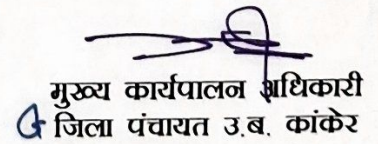 मुख्य कार्यपालन अधिकारी
जिला पंचायत उ.ब. कांकेर